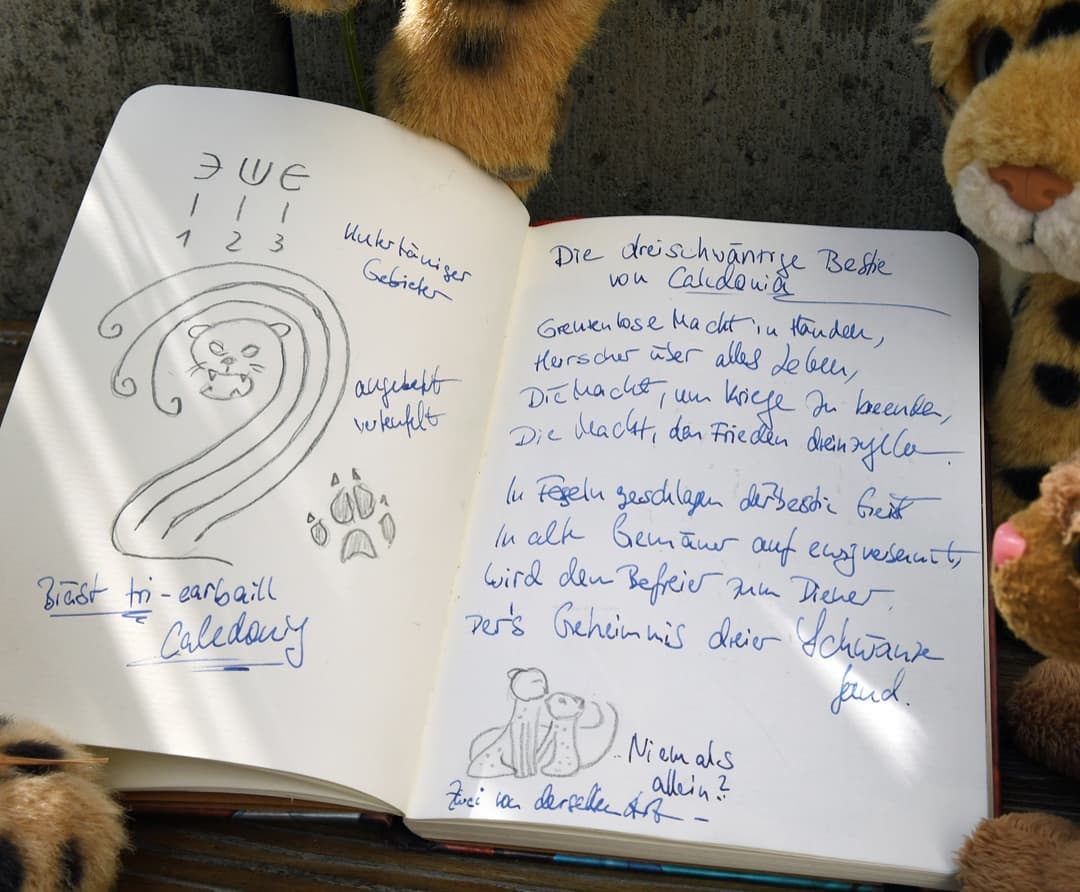 Э Ш Є
1 2 3
Gebieter
angebetet
verteufelt
Biast tri-earbaill
Caledonig
Die dreischwänzige Bestie
von Caledonia
Grenzenlose Macht in Händen,
Herrscher über alles Leben,
Die Macht, um Kriege zu beenden,
Die Macht, den Frieden
In geschlagen Geist
In alte Gemäuer auf ewig verbannt,
wird dem Befreier zum Diener,
Der's Geheimnis dreier Schwänze
fand.
Niemals
allein?
Zwei von derselben Art -